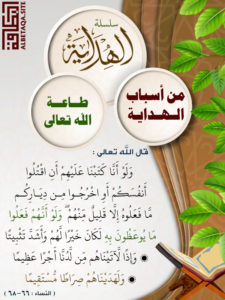 البطاقة
ALBETAQA.SITE
سلسلة
الهداية
من أسباب
الهداية
طاعة
الله تعالى
قال الله تعالى :
وَلَوْ أَنَّا كَتَبْنَا عَلَيْهِمْ أَنِ اقْتُلُوا
أَنفُسَكُمْ أَوِ اخْرُجُوا مِن دِيَارِكُم
مَّا فَعَلُوهُ إِلَّا قَلِيلٌ مِّنْهُمْ وَلَوْ أَنَّهُمْ فَعَلُوا
مَا يُوعَظُونَ بِهِ لَكَانَ خَيْرًا لَّهُمْ وَأَشَدَّ تَثْبِيتًا
وَإِذًا لَّآتَيْنَاهُم مِّن لَّدُنَّا أَجْرًا عَظِيمًا
وَلَهَدَيْنَاهُمْ صِرَاطًا مُّسْتَقِيمًا
( النساء : ٦٦-٦٨ )